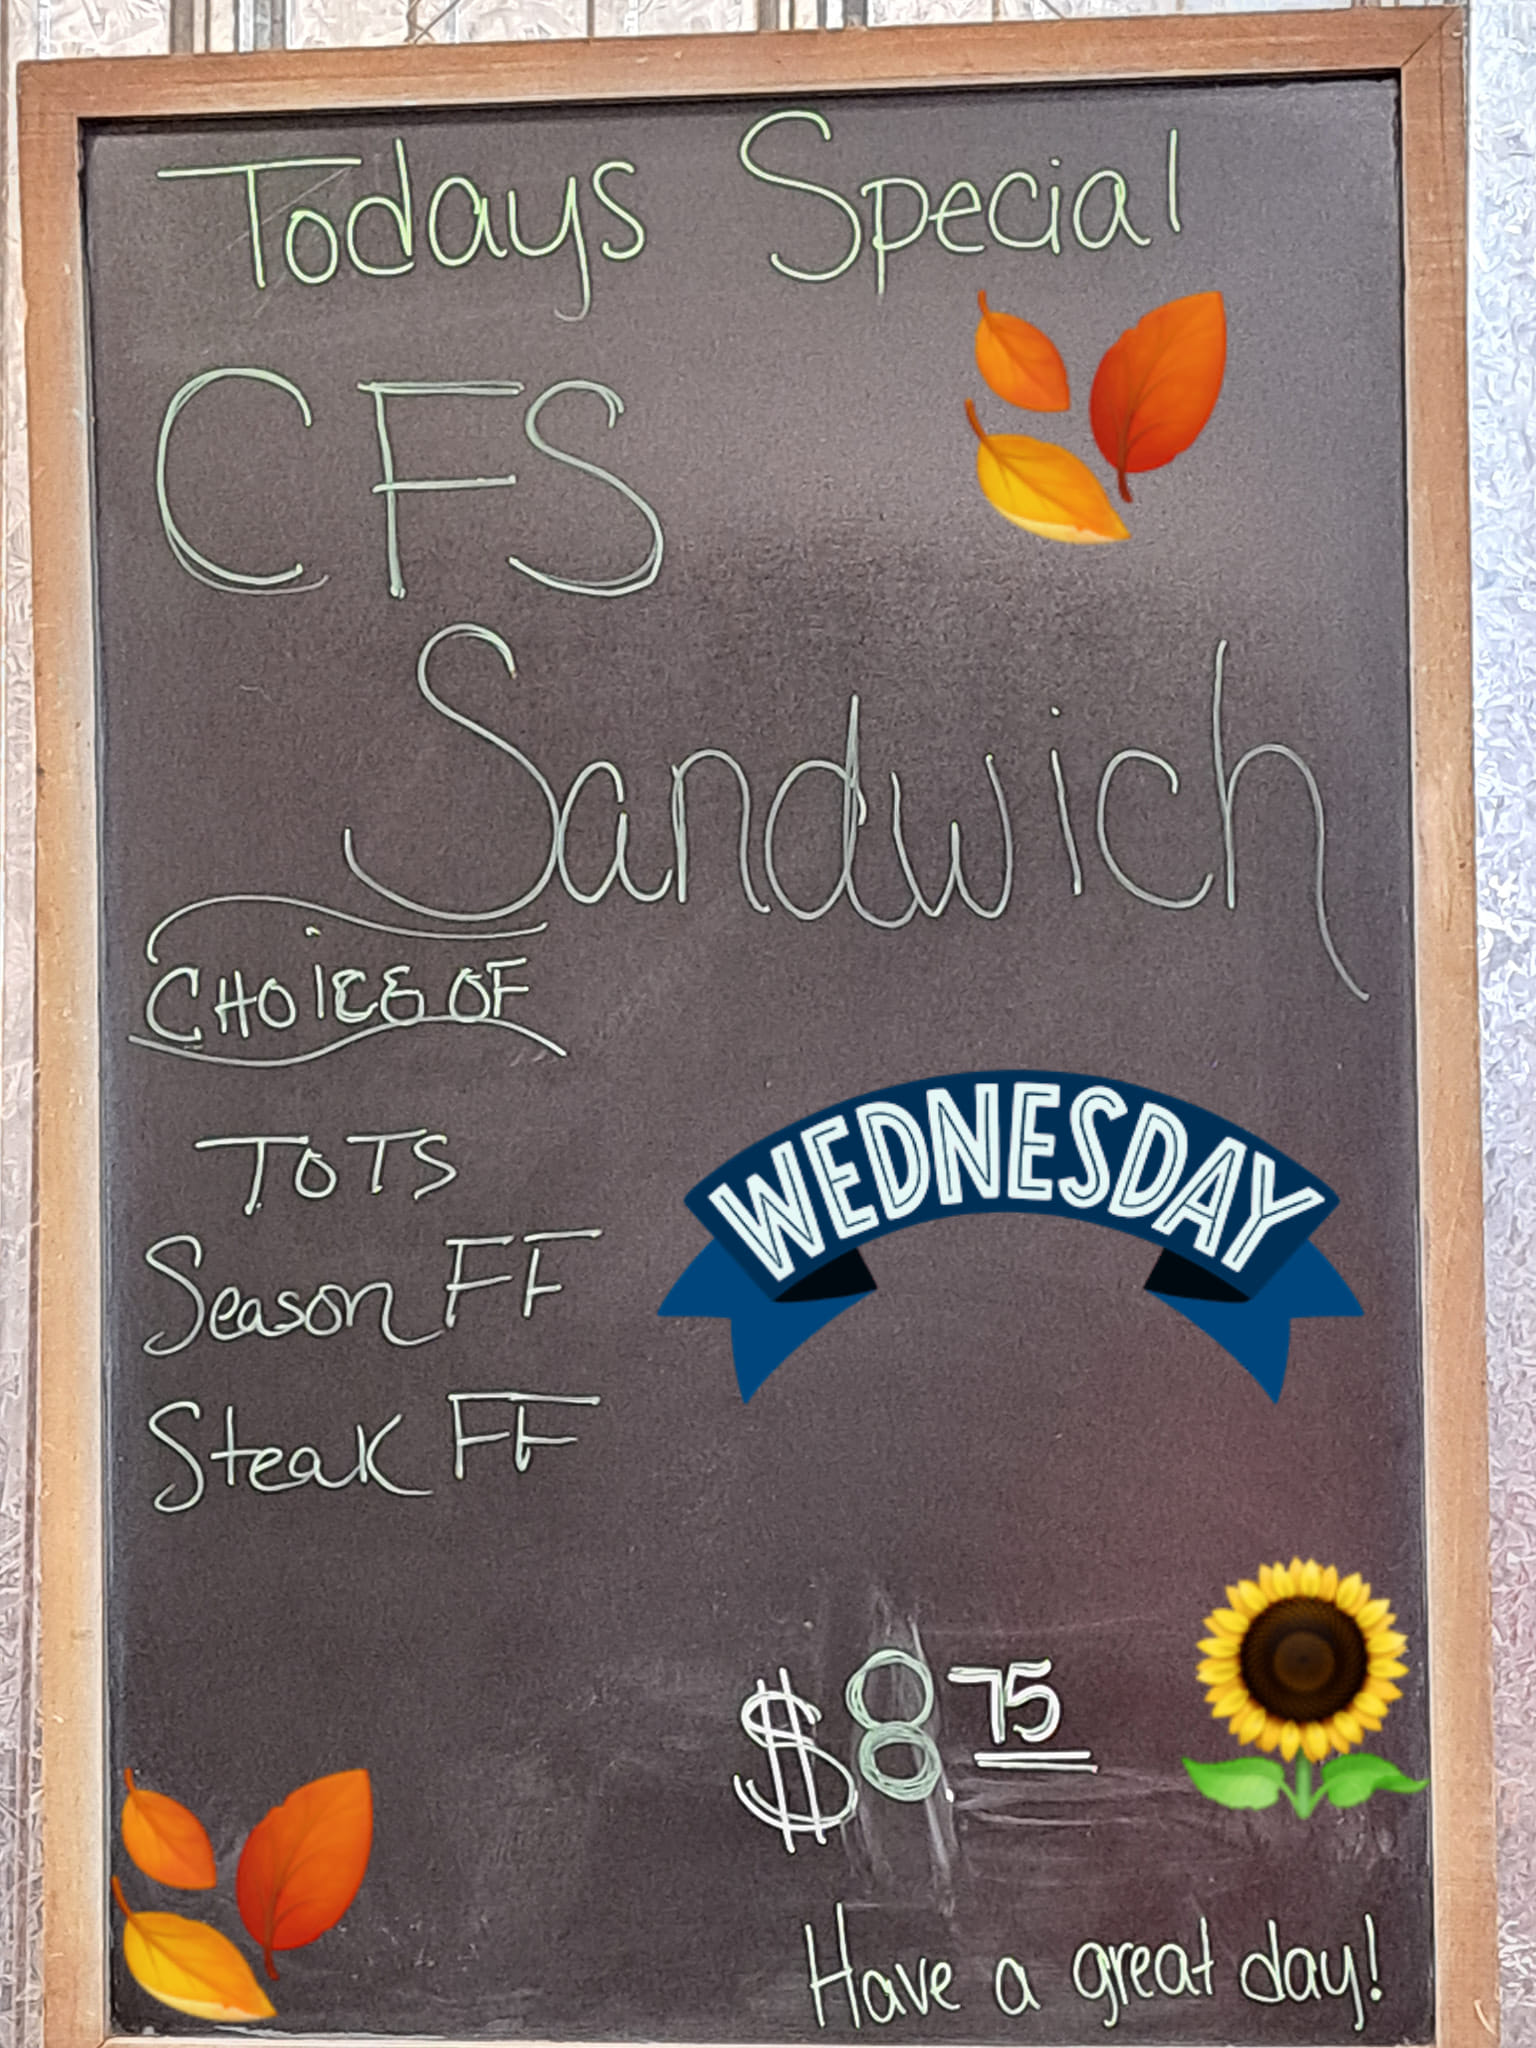 Todays Special
CFS
Sandwich
CHOICE OF
TOTS
Season FF
Steak FF
WEDNESDAY
$8.75
Have a great day!